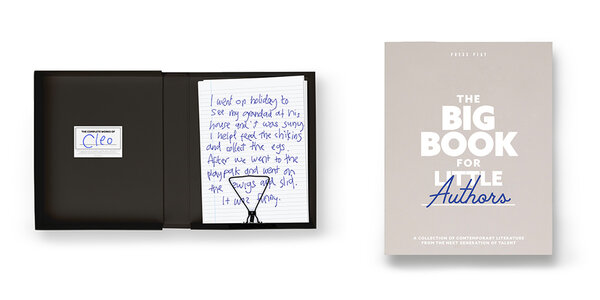 THE COMPLETE WORKS OF
Cleo
I went on holiday to
see my grandad at his
house and it was sunny
I helpt feed the chikins
and collect the egs.
After we went to the
playpak and went on
the swigs and slid.
It was funny.
PRESS PLAY
THE
BIG
BOOK
FOR
LITTLE
Authors
A COLLECTION OF CONTEMPORARY LITERATURE
FROM THE NEXT GENERATION OF TALENT